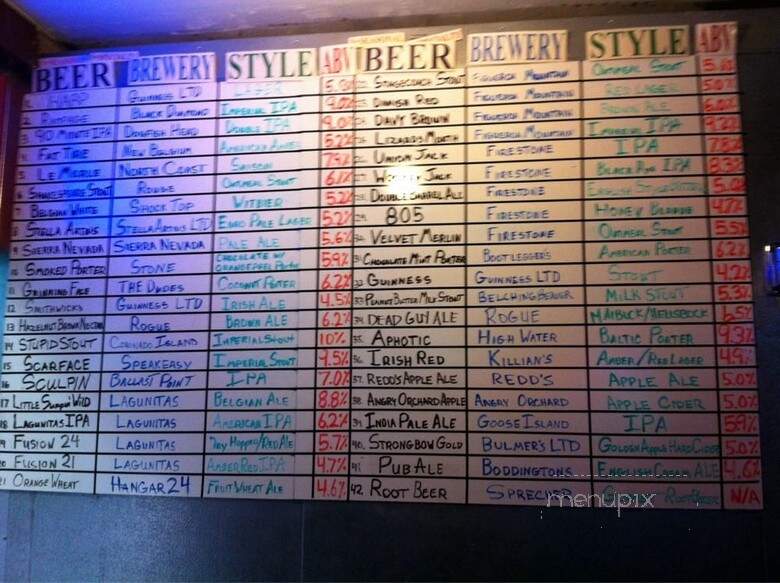 BEER BREWERY STYLE ABV
1. HARP GUINNESS LTD LAGER
2. RAMPAGE BLACK DIAMOND IMPERIAL IPA
3. 90 MINUTE IPA DOGFISH HEAD DOUBLE IPA 9.0%
4. FAT TIRE NEW BELGIUM AMERICAN AMBER 5.2%
5. LE MERLE NORTH COAST SAISON
6. SHAKESPEARE STOUT ROGUE OATMEAL STOUT 6.1%
7. BELGIAN WHITE SHOCK TOP WITBIER 5.2%
8 STELLA ARTOIS STELLA ARTOIS LTD EURO PALE LAGER 5.2%
9 SIERRA NEVADA SIERRA NEVADA PALE ALE 5.6%
10 SMOKED PORTER STONE CHOCOLATE W/ ORANGE PEEL PORTER 5.9%
11 GRINNING FACE THE DUDES COCONUT PORTER 6.2%
12 SMITHWICKS GUINNESS LTD IRISH ALE 4.5%
13 HAZELNUT BROWN NECTAR ROGUE BROWN ALE 6.2%
14 STUPID STOUT CORONADO ISLAND IMPERIAL STOUT 10%
15 SCARFACE SPEAKEASY IMPERIAL STOUT 9.5%
16 SCULPIN BALLAST POINT IPA 7.0%
17 LITTLE SUMPIN' WILD LAGUNITAS BELGIAN ALE 8.8%
18 LAGUNITAS IPA LAGUNITAS AMERICAN IPA 6.2%
19 FUSION 24 LAGUNITAS DRY HOPPED/RED ALE 5.7%
20 FUSION 21 LAGUNITAS AMBER RED IPA 4.7%
21 ORANGE WHEAT HANGAR 24 FRUIT WHEAT ALE 4.6%
BEER BREWERY STYLE ABV
STAGECOACH STOUT FIGUEROA MOUNTAIN OATMEAL STOUT
DANISH RED FIGUEROA MOUNTAIN RED LAGER
DAVY BROWN FIGUEROA MOUNTAIN BROWN ALE 6.0%
LIZARDS MOUTH FIGUEROA MOUNTAIN IMPERIAL IPA 9.2%
UNION JACK FIRESTONE IPA 7.5%
27 WOOKEY JACK FIRESTONE BLACK RYE IPA 8.3%
28 DOUBLE BARREL ALE FIRESTONE ENGLISH STYLE 5.0%
29. 805 FIRESTONE HONEY BLONDE 4.7%
VELVET MERLIN FIRESTONE OATMEAL STOUT 5.5%
31. CHOCOLATE MINT PORTER BOOTLEGGERS AMERICAN PORTER 6.2%
32 GUINNESS GUINNESS LTD STOUT 4.2%
33 PEANUT BUTTER MILK STOUT BELCHING BEAVER MILK STOUT 5.3%
34 DEAD GUY ALE ROGUE MAIBOCK/HELLESBOCK 6.5%
35. APHOTIC HIGH WATER BALTIC PORTER 9.3%
36. IRISH RED KILLIAN'S AMBER/RED LAGER 4.9%
37. REDD'S APPLE ALE REDD'S APPLE ALE 5.0%
38. ANGRY ORCHARD APPLE ANGRY ORCHARD APPLE CIDER 5.0%
39. INDIA PALE ALE GOOSE ISLAND IPA 5.9%
40. STRONGBOW GOLD BULMER'S LTD GOLDEN APPLE HARD CIDER 5.0%
41. PUB ALE BODDINGTONS ENGLISH CREAM ALE 4.6%
42. ROOT BEER SPRECHER ROOT BEER N/A
menupix